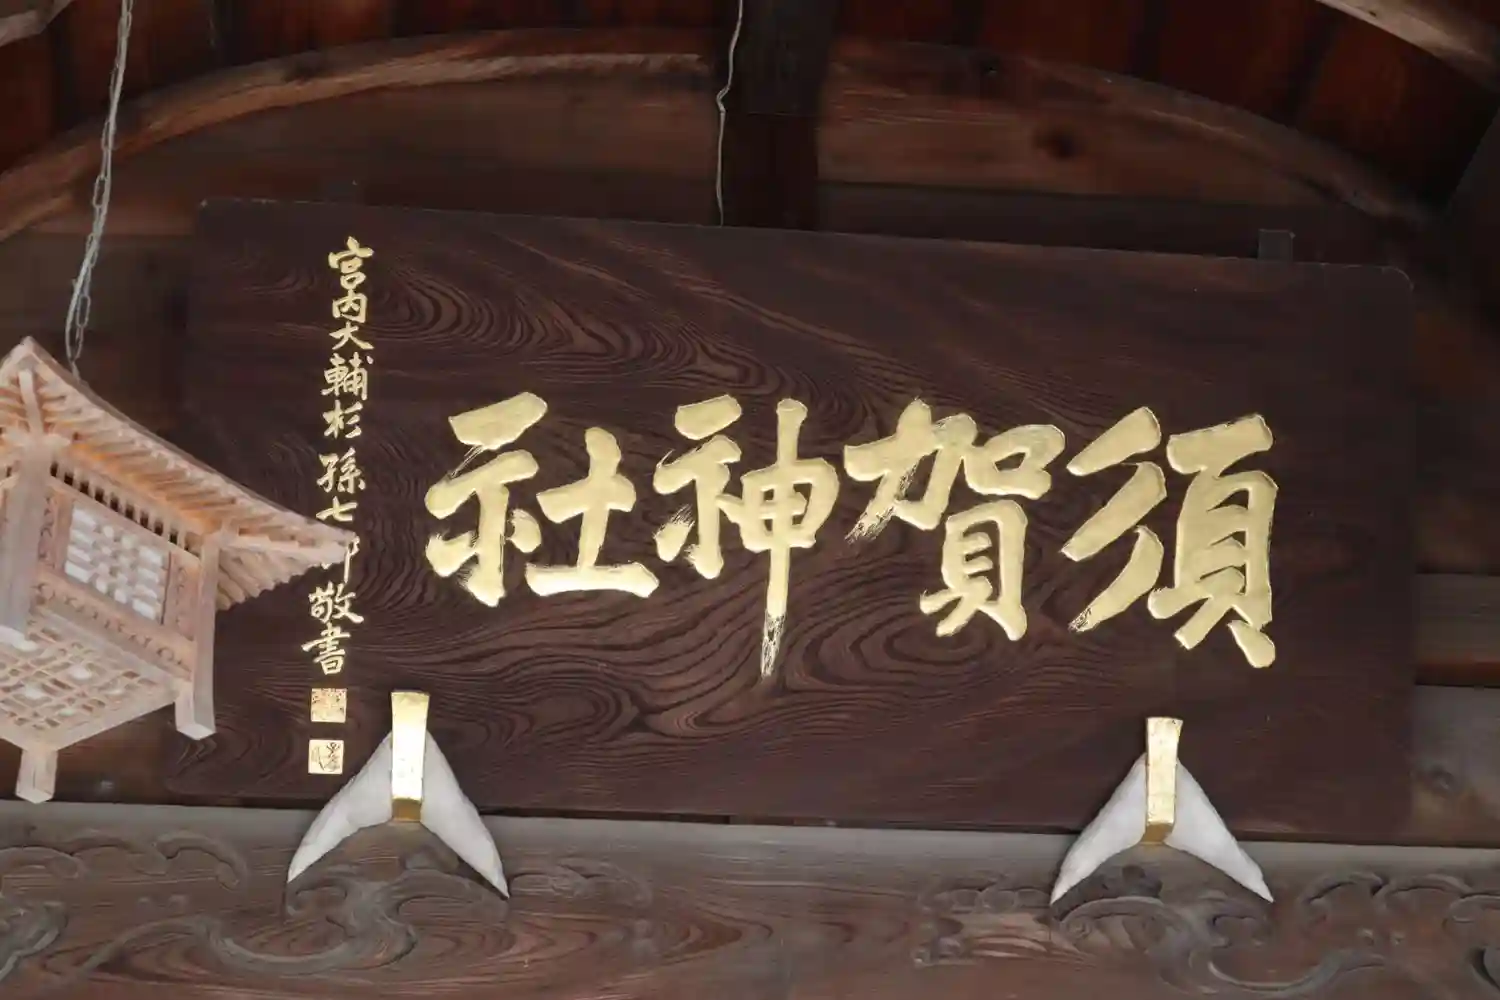 須賀神社
宮内大輔杉孫七郎敬書